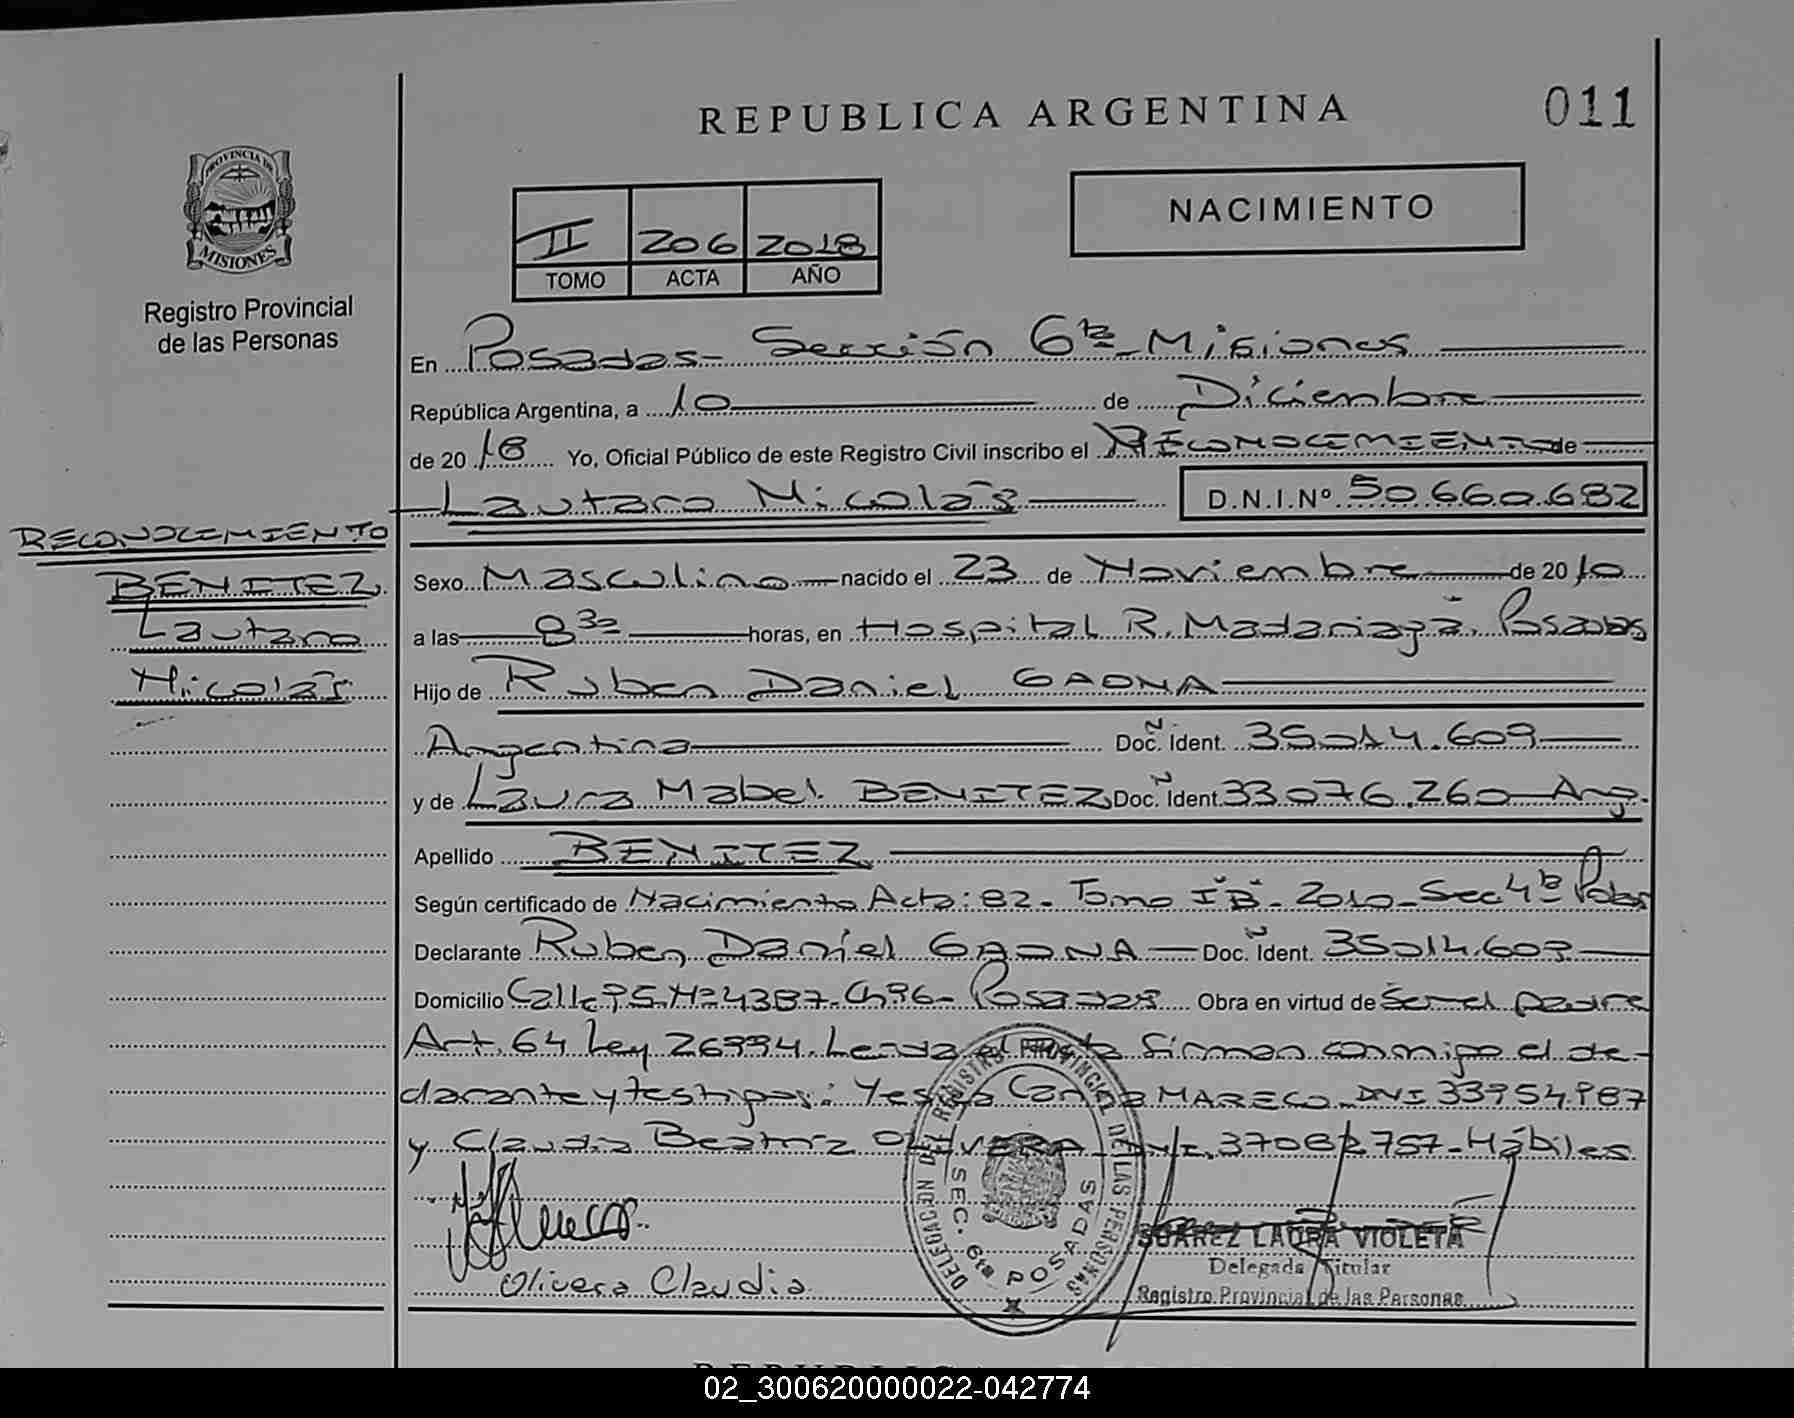 REPUBLICA ARGENTINA
011
PROVINCIA DE
MISIONES
Registro Provincial
de las Personas
II 206 2018
TOMO ACTA AÑO
NACIMIENTO
En Posadas - Sección 6ta - Misiones
República Argentina, a 10 de Diciembre
de 2018 Yo, Oficial Público de este Registro Civil inscribo el RECONOCIMIENTO de
Lautaro Nicolás D.N.I.Nº 50.660.682
RECONOCIMIENTO
BENITEZ
Lautaro
Nicolás
Sexo Masculino nacido el 23 de Noviembre de 2010
a las 8 30 horas, en Hospital R. Madariaga. Posadas
Hijo de Ruben Daniel GAONA
Argentina Doc. Ident. 35014.609
y de Laura Mabel BENITEZ Doc. Ident. 33.076.260 Arg.
Apellido BENITEZ
Según certificado de Nacimiento Acta: 82 - Tomo I "B" - 2010 - Sec 4ta Pdas
Declarante Ruben Daniel GAONA Doc. Ident. 35014.609
Domicilio Calle Nº 4387 - Ch 96 - Posadas Obra en virtud de Ser el padre
Art. 64 Ley 26994. Leida el Acta firman conmigo el de-
clarante y testigos: Yesica Carina MARECO DNI 33954987
y Claudia Beatriz OLIVERA DNI. 37082757 - Hábiles
Olivera Claudia
DELEGACION DEL REGISTRO PROVINCIAL DE LAS PERSONAS
SEC. 6ta POSADAS
SUAREZ LAURA VIOLETA
Delegada Titular
Registro Provincial de las Personas
02_300620000022-042774